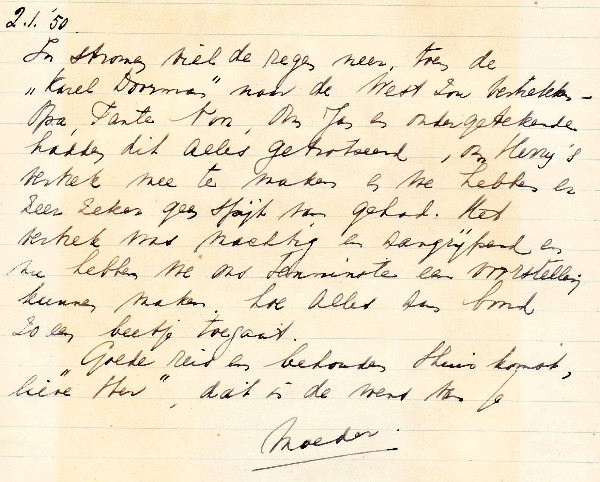 2.1.'50.
In stromen viel de regen neer, toen de
„Karel Doorman" naar de West zou vertrekken.
Opa, Tante Non, Om Jan en ondergetekende
hadden dit alles getrotseerd, om Henny's
vertrek mee te maken en we hebben er
zeer zeker geen spijt van gehad. Het
vertrek was machtig en aangrijpend en
nu hebben we ons tenminste een voorstelling
kunnen maken, hoe alles aan boord
zo een beetje toegaat.
„Goede reis en behouden thuiskomst,
lieve Hen", dat is de wens van je
Moeder.